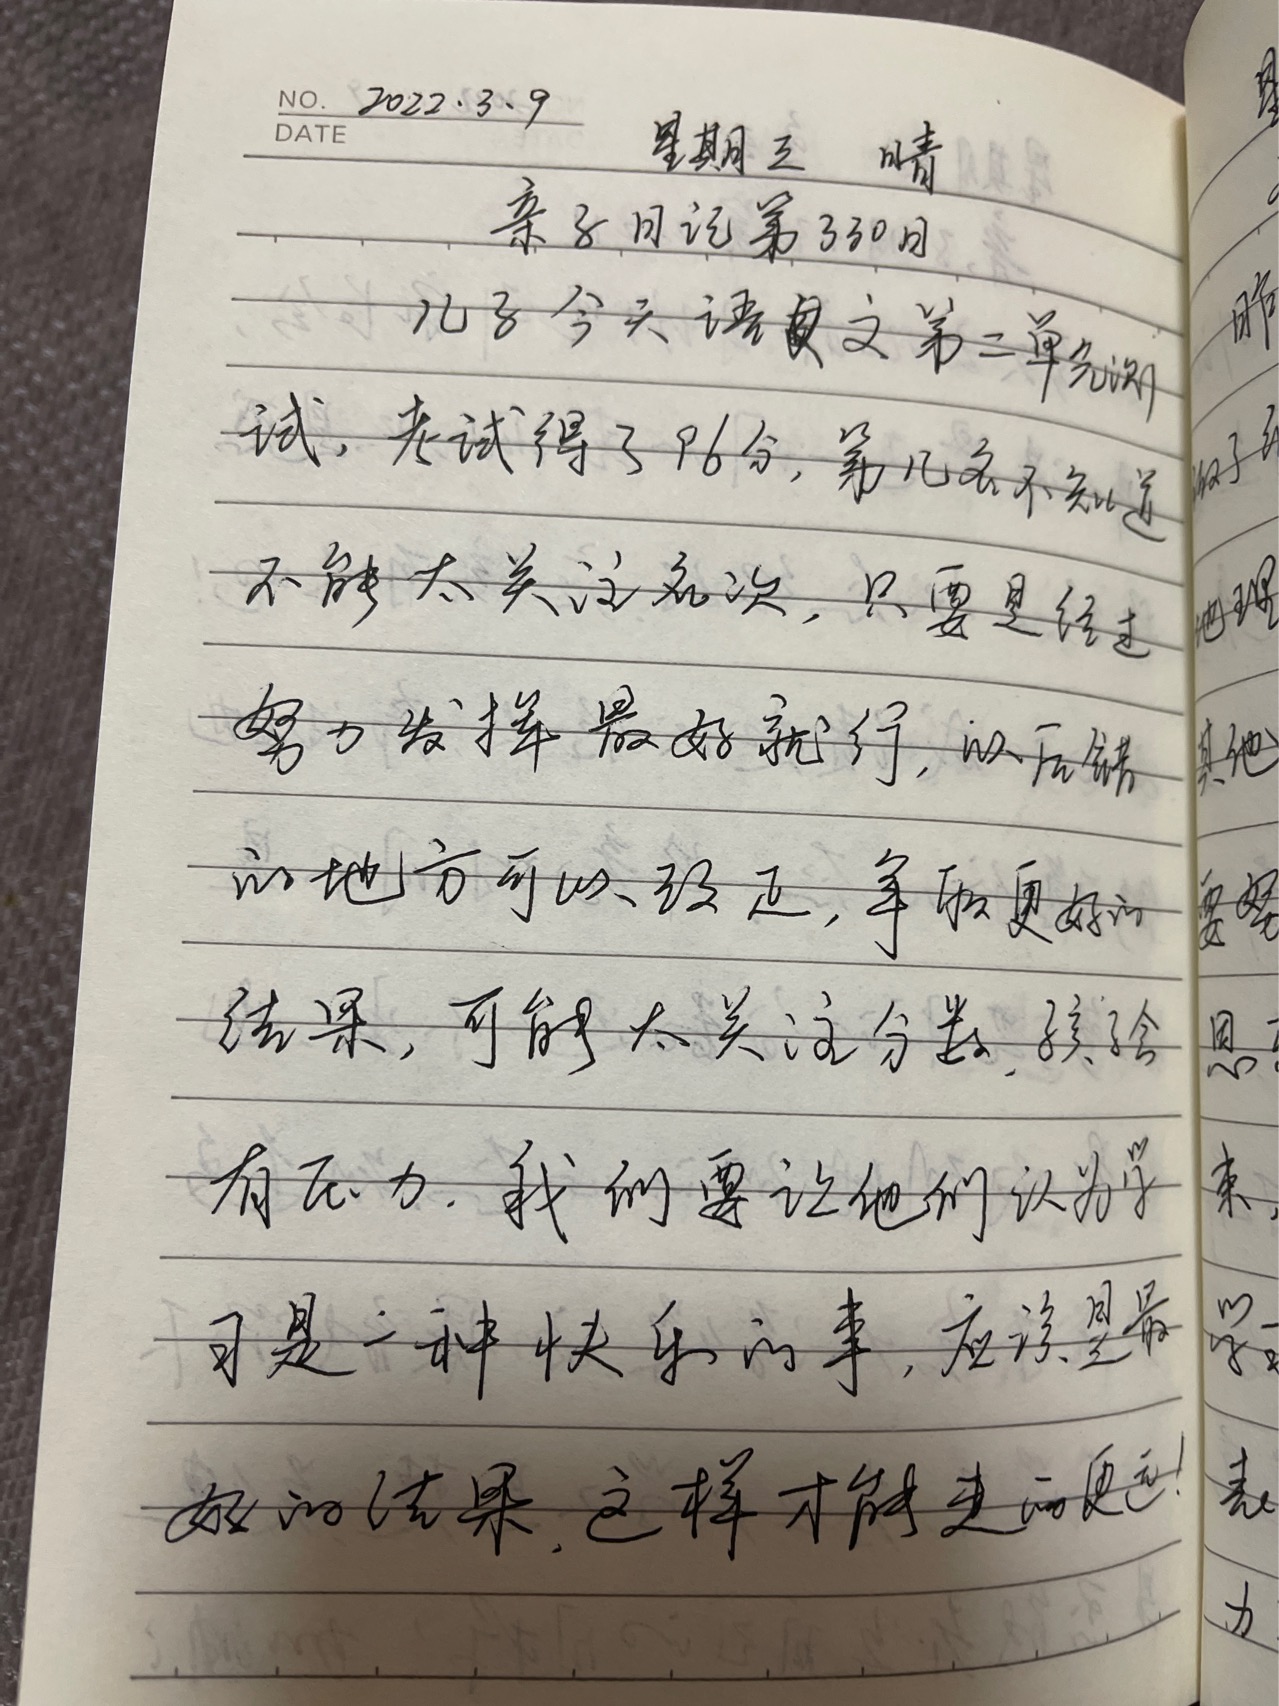 NO. 2022.3.9
DATE
星期三 晴
亲子日记第330日
儿子今天语文第二单元测
试，考试得了96分，第几名不知道
不能太关注名次，只要是经过
努力发挥最好就行，以后错
的地方可以改正，争取更好的
结果，可能太关注分数，孩子会
有压力．我们要让他们认为学
习是一种快乐的事，应该是最
好的结果，这样才能走的更远！